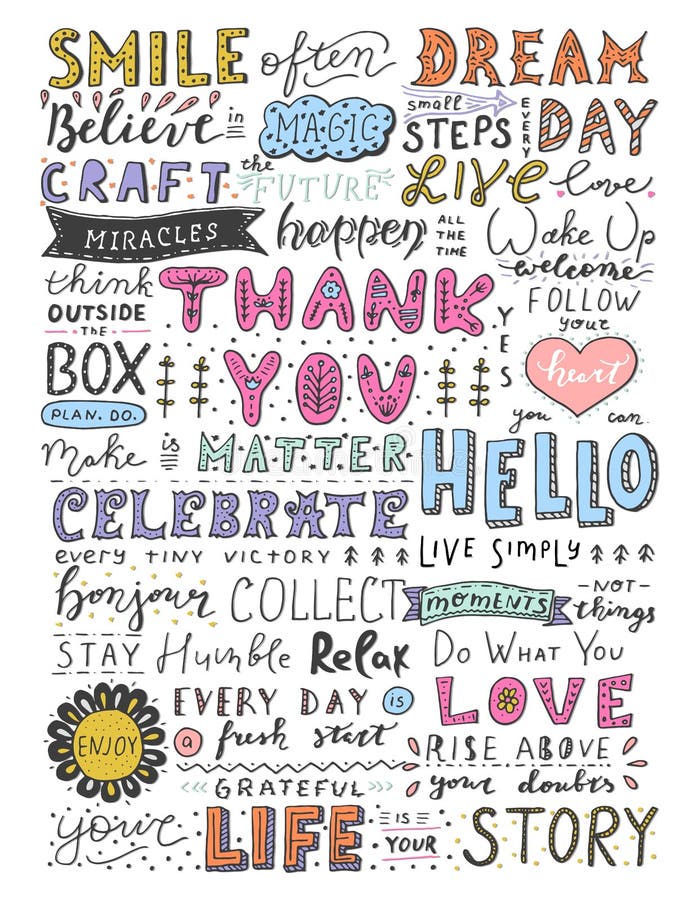 SMILE often DREAM
Believe in MAGIC small STEPS EVERY DAY
CRAFT the FUTURE LIVE love
MIRACLES happen ALL THE TIME Wake Up
welcome
think OUTSIDE the BOX
PLAN. DO.
THANK YOU
YES
FOLLOW your heart
you can
make is MATTER
HELLO
CELEBRATE
every TINY VICTORY LIVE SIMPLY
bonjour COLLECT MOMENTS -NOT- things
STAY Humble Relax DO WHAT YOU LOVE
ENJOY EVERY DAY is a fresh start
RISE ABOVE your doubts
GRATEFUL
your LIFE IS YOUR STORY